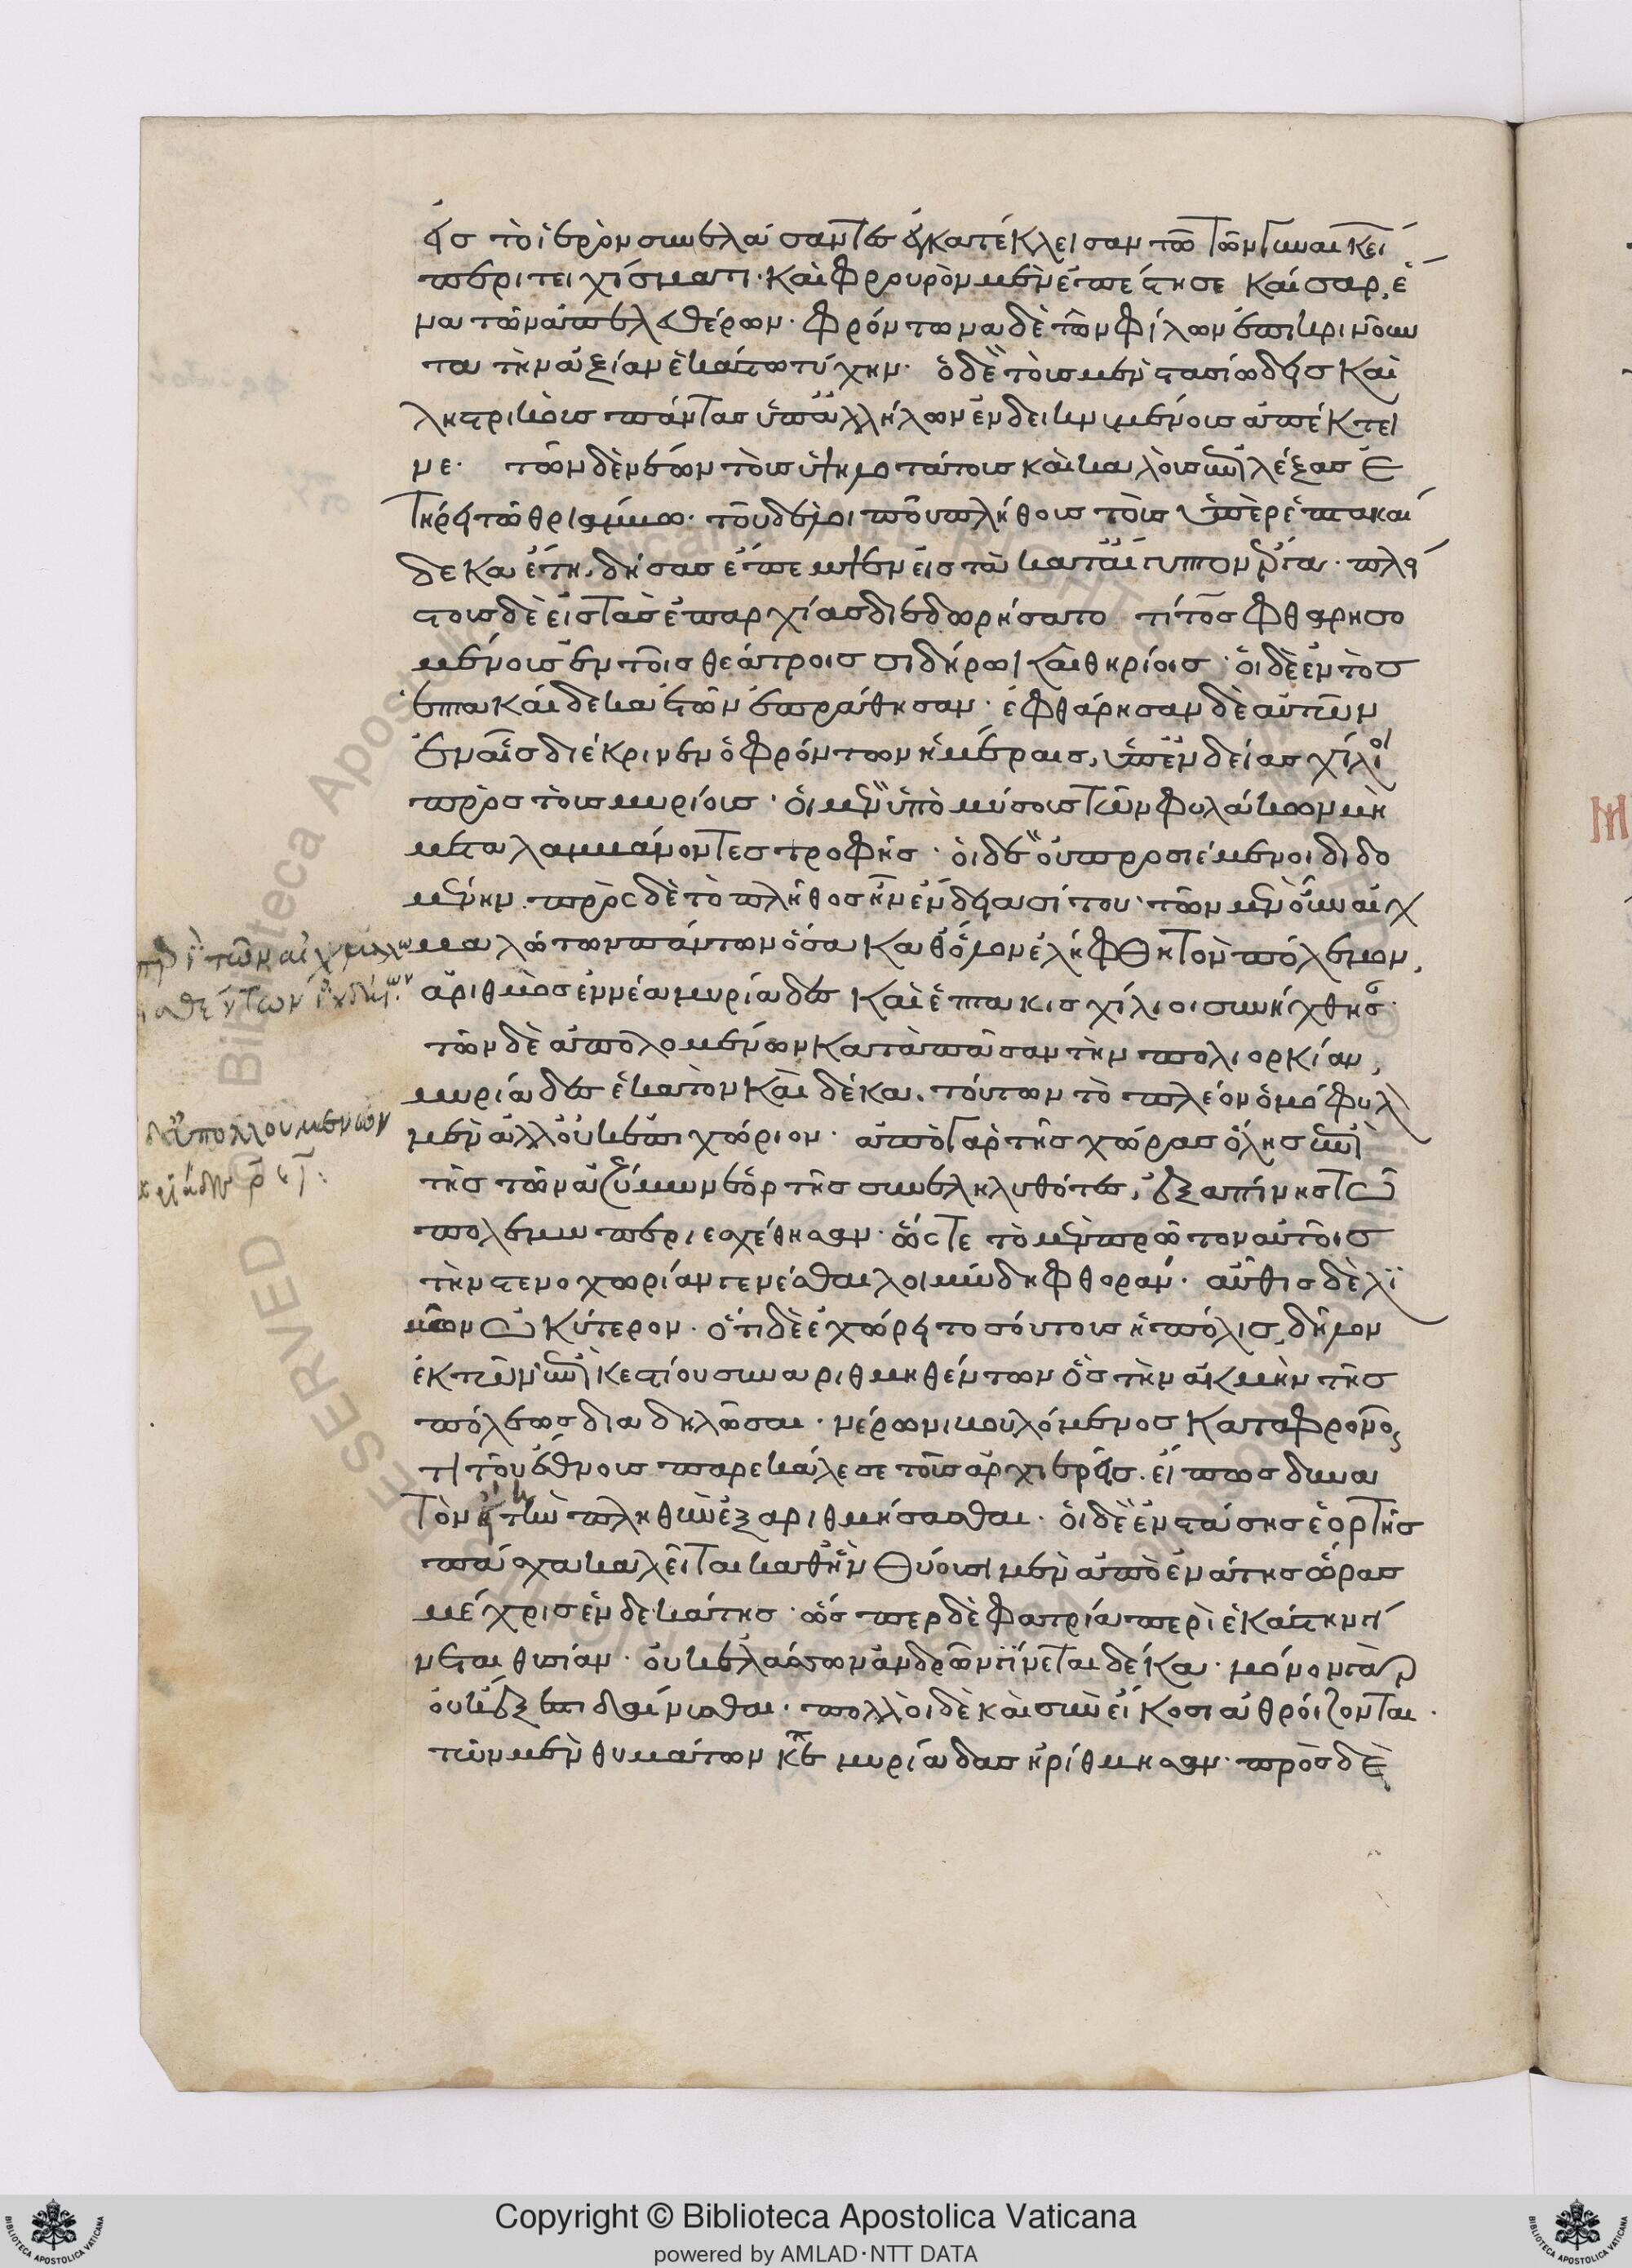 εἰς τὸ ἱερὸν συνελάσαντες ἐγκατέκλεισαν τῶ τῶν γυναικεί
περιτειχίσματι· καὶ φρουρὸν μὲν ἐπέστησε καίσαρ, ἕ
να τῶν ἀπελευθέρων· φρόντωνα δὲ τῶν φίλων ἐπικρινοῦν
τα τὴν ἀξίαν ἑκάστω τύχην· ὁ δὲ τοὺς μὲν στασιώδεις καὶ
ληστρικοὺς πάντας ὑπ' ἀλλήλων ἐνδεικνυμένους ἀπέκτει
νε· τῶν δὲ νέων τοὺς ὑψηλοτάτους καὶ καλοὺς ἐπιλέξας ἐ
τήρει τῶ θριάμβω· τοῦ δὲ λοιποῦ πλήθους τοὺς ὑπὲρ ἑπτακαί
δεκα ἔτη, δήσας ἔπεμψεν εἰς τὰ κατ' αἴγυπτον ἔργα· πλεί
στους δὲ εἰς τὰς ἐπαρχίας διεδωρήσατο τίτος φθαρησο
μένους ἐν τοῖς θεάτροις σιδήρω καὶ θηρίοις· οἱ δὲ ἐντὸς
ἑπτακαίδεκα ἐτῶν ἐπράθησαν· ἐφθάρησαν δὲ αὐτῶν
ἐν αἷς διέκρινεν ὁ φρόντων ἡμέραις, ὑπ' ἐνδείας χίλιοι
πρὸς τοὺς μυρίους· οἱ μὲν ὑπὸ μίσους τῶν φυλάκων μὴ
μεταλαμβάνοντες τροφῆς· οἱ δὲ οὐ προσιέμενοι διδο
μένην· πρὸς δὲ τὸ πλῆθος ἦν ἔνδεια σίτου· τῶν μὲν οὖν αἰχ
μαλώτων πάντων ὅσα καθ' ὅλον ἐλήφθη τὸν πόλεμον,
ἀριθμὸς ἐννέα μυριάδες καὶ ἑπτακισχίλιοι συνήχθησ
τῶν δὲ ἀπολομένων κατὰ πᾶσαν τὴν πολιορκίαν,
μυριάδες ἑκατὸν καὶ δέκα. τούτων τὸ πλέον ὁμόφυλ
μὲν ἀλλ' οὐκ ἐπιχώριον· ἀπὸ γὰρ τῆς χώρας ὅλης ἐπὶ
τῆς τῶν ἀζύμων ἑορτῆς συνεληλυθότες, ἐξαπίνης τῶ
πολέμω περιεσχέθησαν· ὥστε τὸ μὲν πρῶτον αὐτοῖς
τὴν στενοχωρίαν γενέσθαι λοιμώδη φθοράν· αὖθις δὲ λι
μὸν ὠκύτερον· ὅτι δὲ ἐχώρει τοσούτους ἡ πόλις, δῆλον
ἐκ τῶν ἐπὶ κεστίου συναριθμηθέντων ὃς τὴν ἀκμὴν τῆς
πόλεως διαδηλῶσαι· νέρωνι βουλόμενος καταφρονοῦν
τι τοῦ ἔθνους παρεκάλεσε τοὺς ἀρχιερεῖς. εἴ πως δυνα
τὸν εἴη τὴν πληθὺν ἐξαριθμήσασθαι· οἱ δὲ ἐνστάσης ἑορτῆς
πάσχα καλεῖται καθ' ἣν θύουσι μὲν ἀπὸ ἐνάτης ὥρας
μέχρις ἑνδεκάτης· ὥσπερ δὲ φατρία περὶ ἑκάστην γί
νεται θυσίαν· οὐκ ἐλασσόνων ἀνδρῶν γίνεται δέκα· μόνον γὰρ
οὐκ ἔξεστι δαίνυσθαι· πολλοὶ δὲ καὶ σὺν εἴκοσι ἀθροίζονται·
τῶν μὲν θυμάτων κε μυριάδας ἠρίθμησαν· πρὸς δὲ